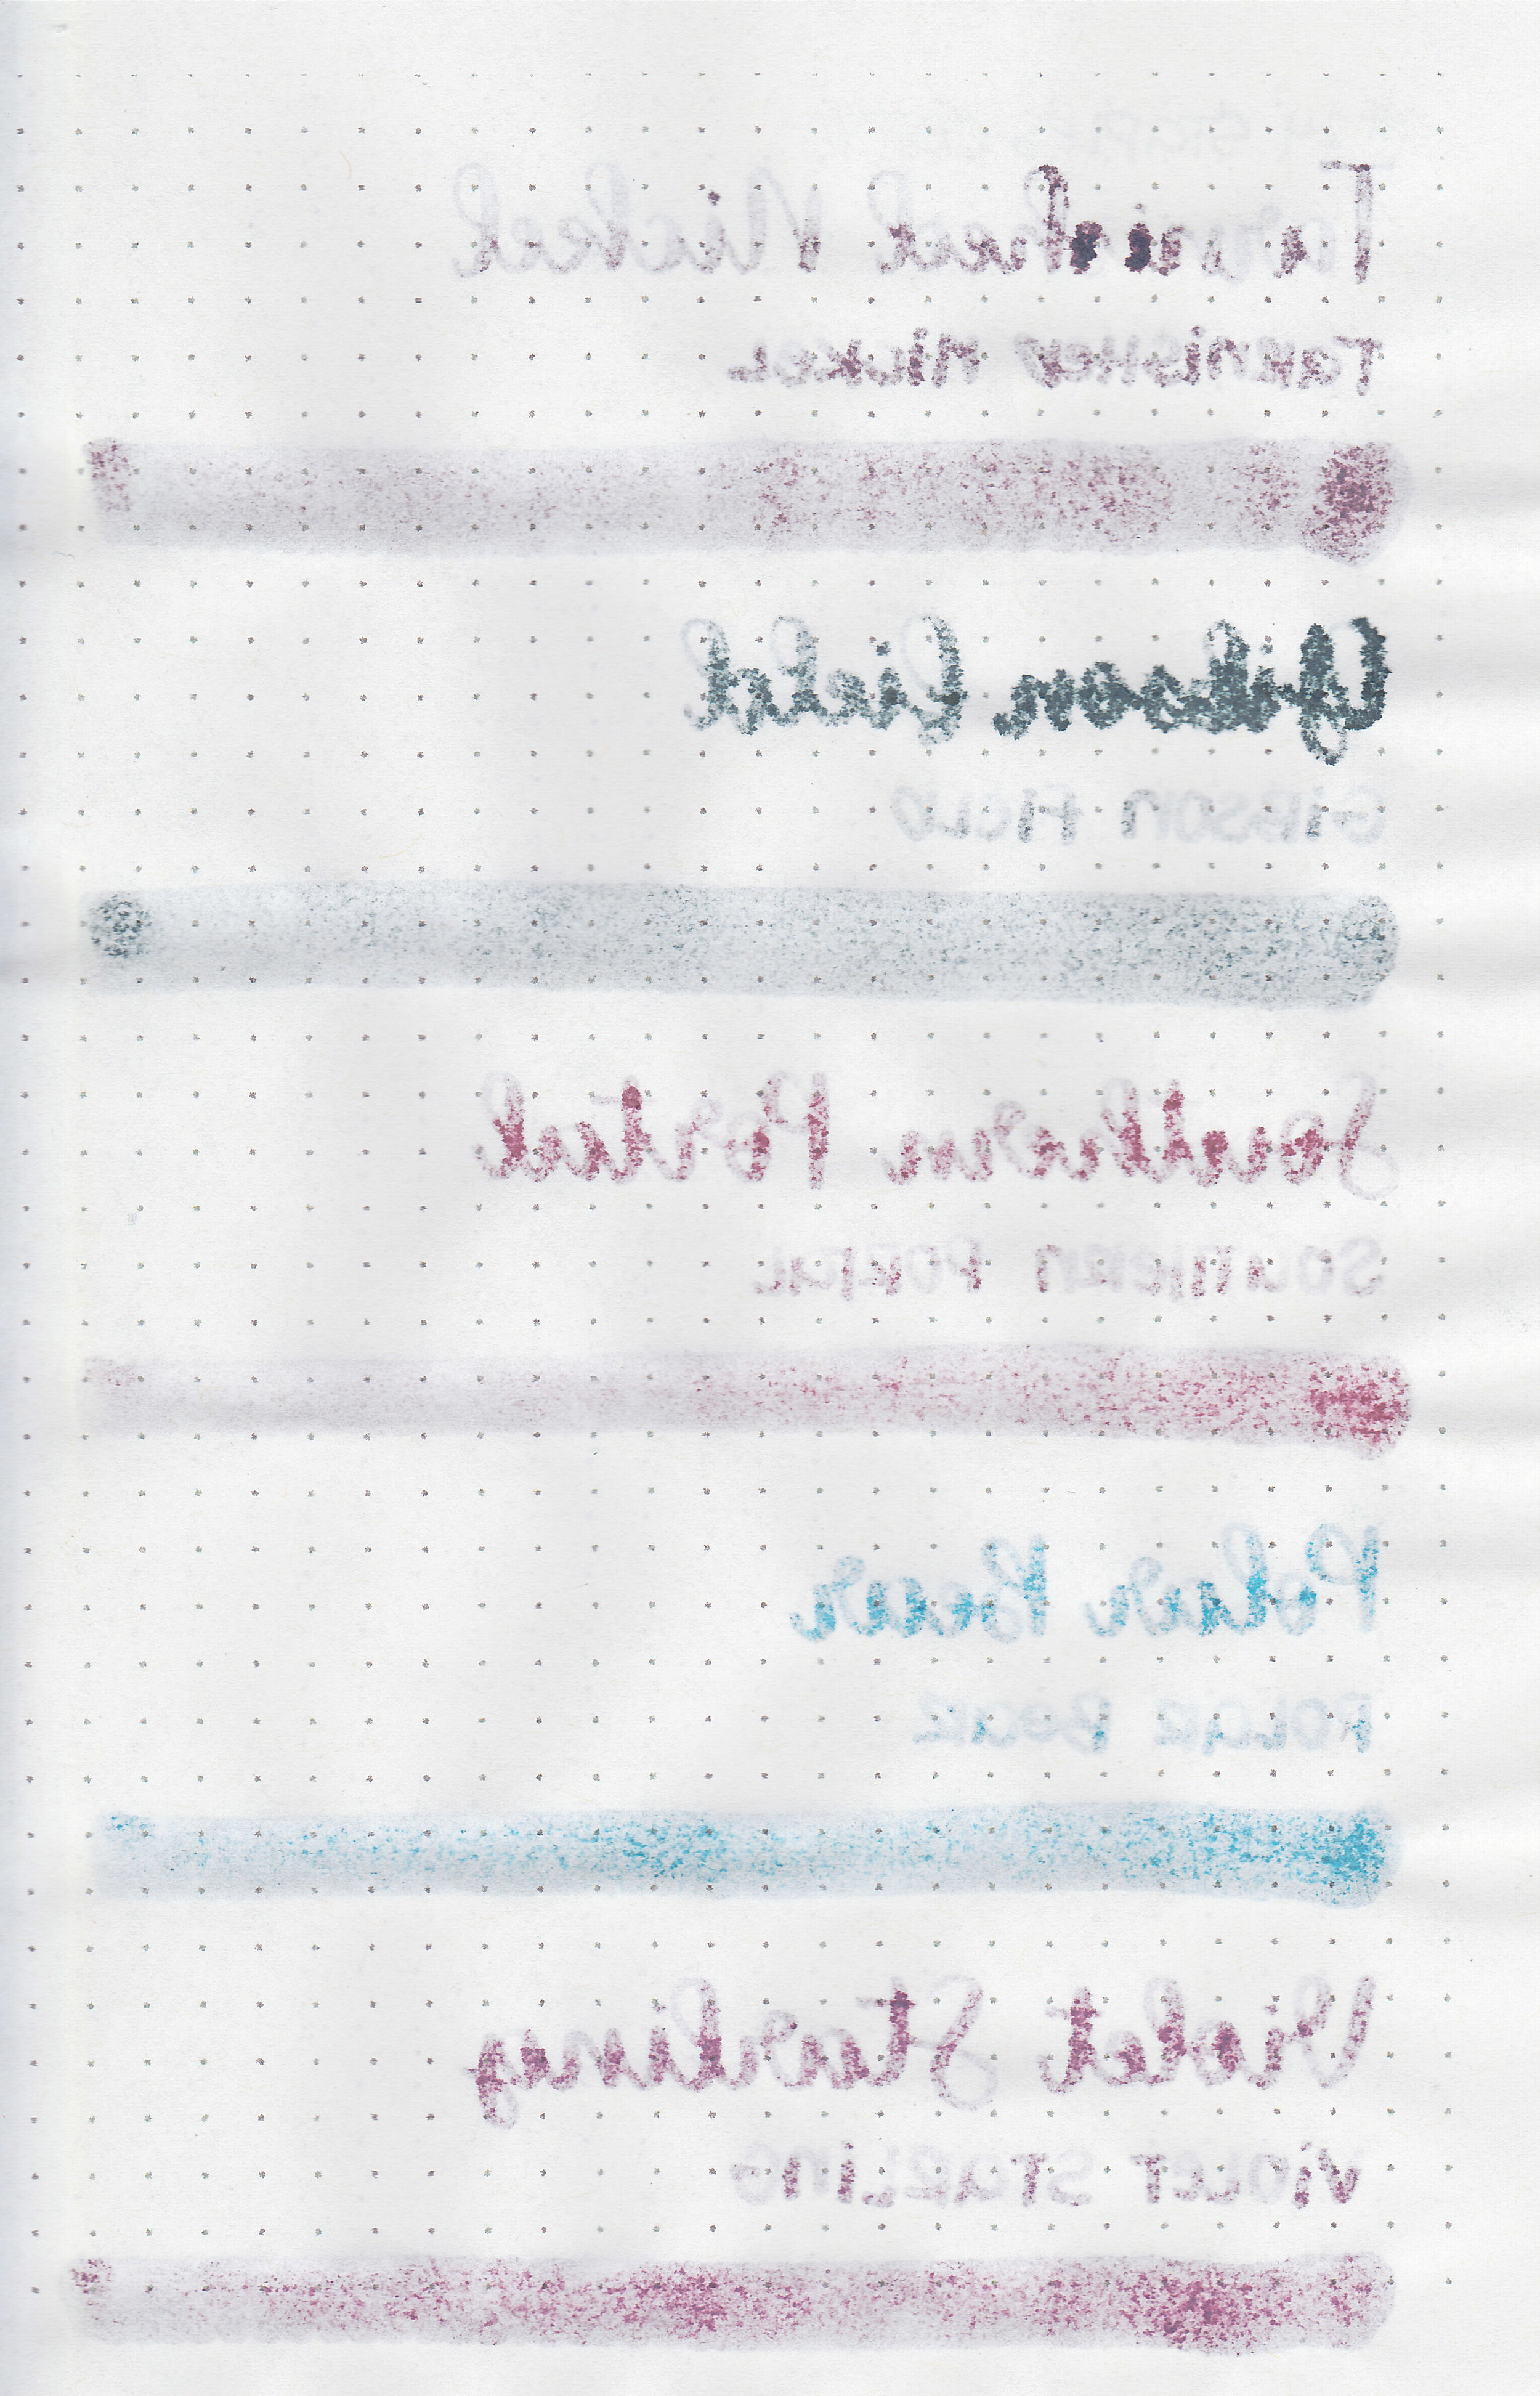 Tarnished Nickel
TARNISHED NICKEL
Gibson Field
GIBSON FIELD
Southern Portal
SOUTHERN PORTAL
Polar Bear
POLAR BEAR
Violet Starling
VIOLET STARLING